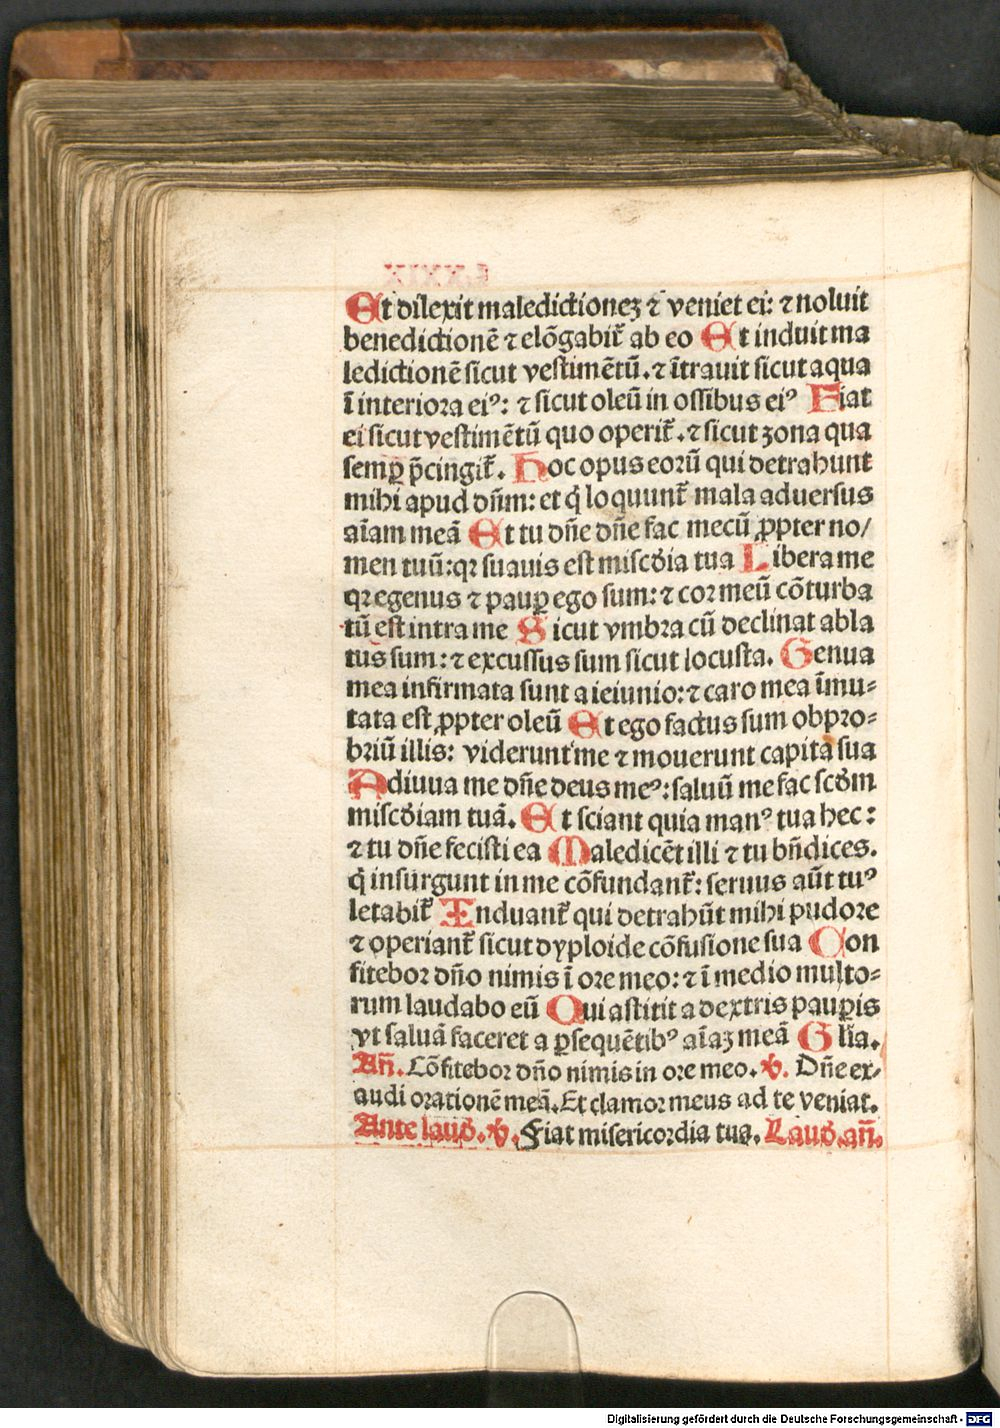 Et dilexit maledictioneȝ ⁊ veniet ei: ⁊ noluit
benedictionē ⁊ elōgabit᷑ ab eo Et induit ma
ledictionē sicut vestimētū. ⁊ ītrauit sicut aqua
ī interiora eiꝰ: ⁊ sicut oleū in ossibus eiꝰ Fiat
ei sicut vestimētū quo operit᷑. ⁊ sicut zona qua
semꝑ p̄cingit᷑. Hoc opus eorū qui detrahunt
mihi apud dn̄m: et q̇ loquunt᷑ mala aduersus
aīam meā Et tu dn̄e dn̄e fac mecū ꝓpter no/
men tuū: qꝛ suauis est miscd̓ia tua Libera me
qꝛ egenus ⁊ pauꝑ ego sum: ⁊ cor meū cōturba
tū est intra me Sicut vmbra cū declinat abla
tus sum: ⁊ excussus sum sicut locusta. Genua
mea infirmata sunt a ieiunio: ⁊ caro mea īmu-
tata est ꝓpter oleū Et ego factus sum obpro-
briū illis: viderunt me ⁊ mouerunt capita sua
Adiuua me dn̄e deus meꝰ: saluū me fac scd̓m
miscd̓iam tuā. Et sciant quia manꝰ tua hec:
⁊ tu dn̄e fecisti ea Maledicēt illi ⁊ tu bn̄dices.
q̇ insurgunt in me cōfundant᷑: seruus aūt tuꝰ
letabit᷑ Induant᷑ qui detrahūt mihi pudore
⁊ operiant᷑ sicut dyploide cōfusione sua Con
fitebor dn̄o nimis ī ore meo: ⁊ ī medio multo-
rum laudabo eū Qui astitit a dextris pauꝑis
vt saluā faceret a ꝑsequētibꝰ aīaȝ meā Glīa.
An̄. Cōfitebor dn̄o nimis in ore meo. ℣. Dn̄e ex-
audi orationē meā. Et clamor meus ad te veniat.
Ante laud̓. ℣. Fiat misericordia tua. Laud̓. an̄.
Digitalisierung gefördert durch die Deutsche Forschungsgemeinschaft - DFG